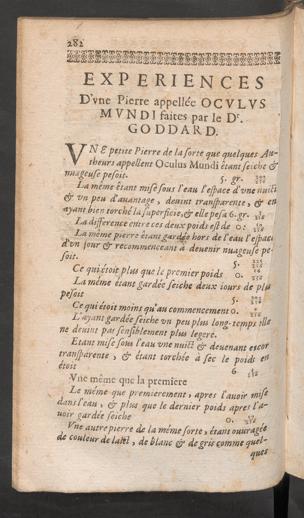 282
EXPERIENCES
D'vne Pierre appellée OCVLVS
MVNDI faites par le Dr.
GODDARD.
VNE petite Pierre de la sorte que quelques Au-
theurs appellent Oculus Mundi étant seiche &
nuageuse pesoit. 5. gr.
La même étant mise sous l'eau l'espace d'vne nuict
& vn peu d'auantage, deuint transparente, & en
ayant bien torché la superficie, & elle pesa 6. gr.
La difference entre ces deux poids est de 0.
La même pierre étant gardée hors de l'eau l'espace
d'vn jour & recommenceant à deuenir nuageuse pe-
soit. 5.
Ce qui étoit plus que le premier poids 0.
La même étant gardée seiche deux iours de plus
pesoit 5.
Ce qui étoit moins qu'au commencement 0.
L'ayant gardée seiche vn peu plus long-temps elle
ne deuint pas sensiblement plus legere.
Etant mise sous l'eau vne nuict & deuenant encor
transparente, & étant torchée à sec le poids en
étoit 6
Vne même que la premiere
Le même que premierement, apres l'auoir mise
dans l'eau, & plus que le dernier poids apres l'a-
uoir gardée seiche 0.
Vne autre pierre de la même sorte, étant ouuragée
de couleur de laict, de blanc & de gris comme quel-
ques